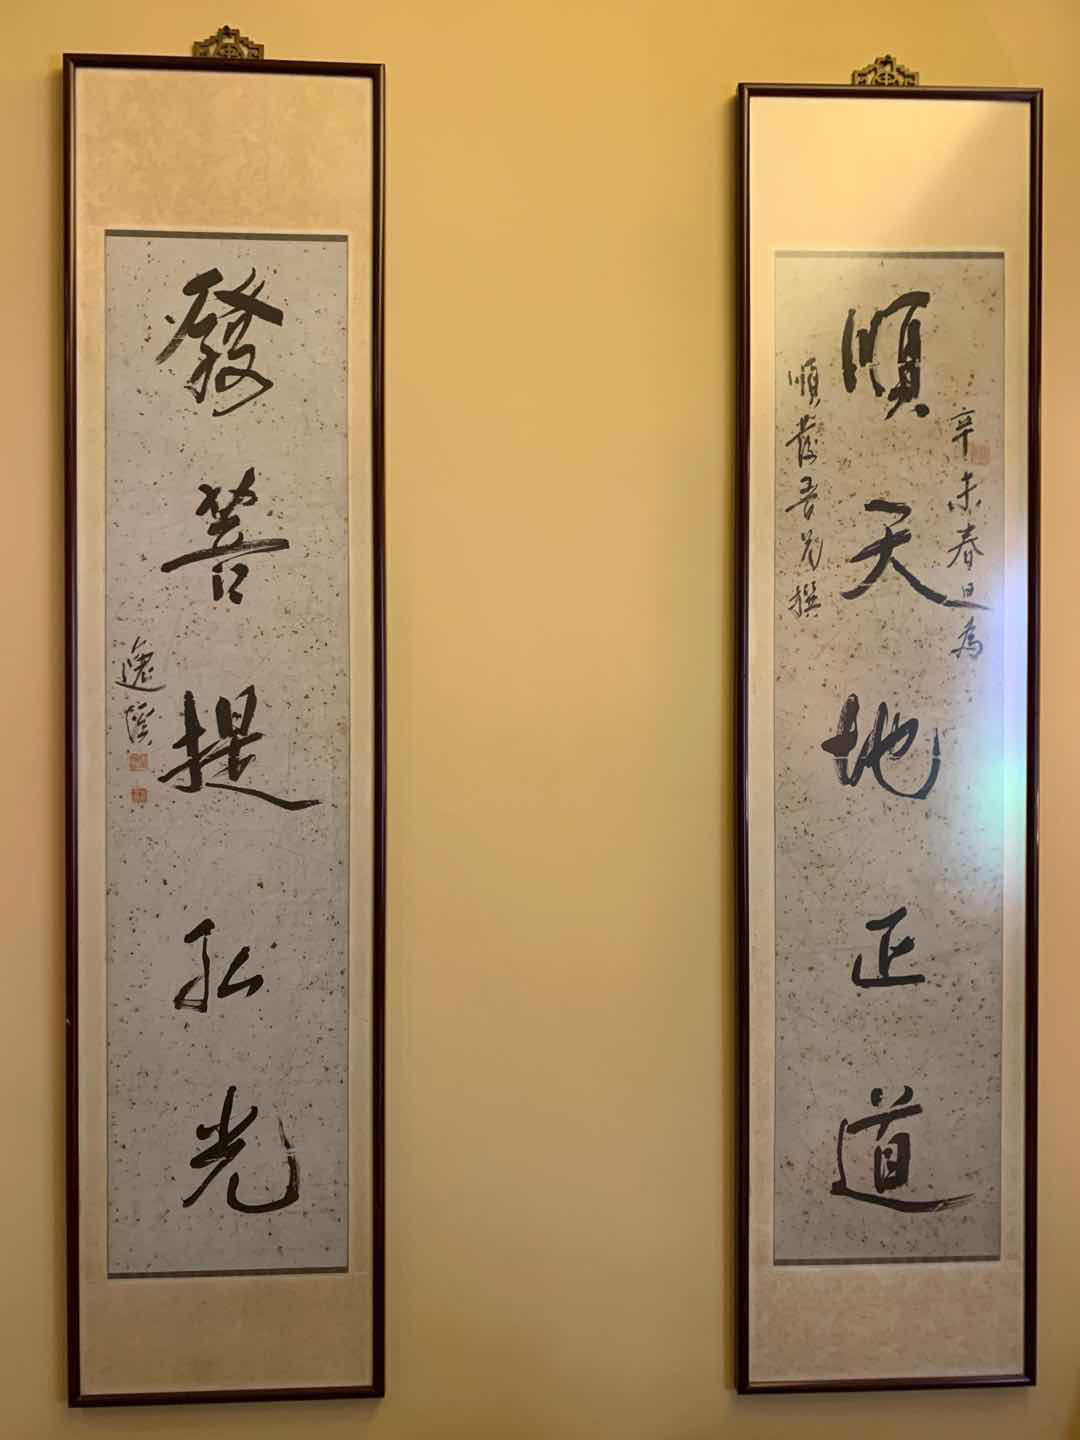 辛未春日為
順天地正道
順發吾兄撰
發菩提弘光